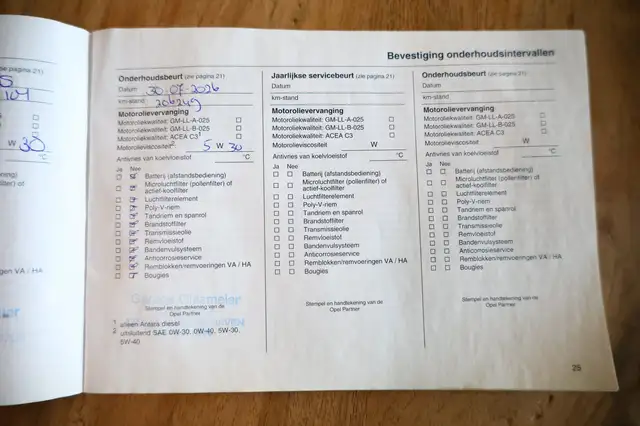 Bevestiging onderhoudsintervallen
Onderhoudsbeurt (zie pagina 21)
Datum 30-07-2026
km-stand 206249
Motorolievervanging
Motoroliekwaliteit: GM-LL-A-025
Motoroliekwaliteit: GM-LL-B-025
Motoroliekwaliteit: ACEA C3¹
Motorolieviscositeit² 5 W 30
Antivries van koelvloeistof °C
Ja Nee
Batterij (afstandsbediening)
Microluchtfilter (pollenfilter) of
actief-koolfilter
Luchtfilterelement
Poly-V-riem
Tandriem en spanrol
Brandstoffilter
Transmissieolie
Remvloeistof
Bandenvulsysteem
Anticorrosieservice
Remblokken/remvoeringen VA / HA
Bougies
Stempel en handtekening van de
Opel Partner
1 alleen Antara diesel
2 uitsluitend SAE 0W-30, 0W-40, 5W-30,
5W-40
Jaarlijkse servicebeurt (zie pagina 21)
Datum
km-stand
Motorolievervanging
Motoroliekwaliteit: GM-LL-A-025
Motoroliekwaliteit: GM-LL-B-025
Motoroliekwaliteit: ACEA C3
Motorolieviscositeit W
Antivries van koelvloeistof °C
Ja Nee
Batterij (afstandsbediening)
Microluchtfilter (pollenfilter) of
actief-koolfilter
Luchtfilterelement
Poly-V-riem
Tandriem en spanrol
Brandstoffilter
Transmissieolie
Remvloeistof
Bandenvulsysteem
Anticorrosieservice
Remblokken/remvoeringen VA / HA
Bougies
Stempel en handtekening van de
Opel Partner
Onderhoudsbeurt (zie pagina 21)
Datum
km-stand
Motorolievervanging
Motoroliekwaliteit: GM-LL-A-025
Motoroliekwaliteit: GM-LL-B-025
Motoroliekwaliteit: ACEA C3
Motorolieviscositeit W
Antivries van koelvloeistof °C
Ja Nee
Batterij (afstandsbediening)
Microluchtfilter (pollenfilter) of
actief-koolfilter
Luchtfilterelement
Poly-V-riem
Tandriem en spanrol
Brandstoffilter
Transmissieolie
Remvloeistof
Bandenvulsysteem
Anticorrosieservice
Remblokken/remvoeringen VA / HA
Bougies
Stempel en handtekening van de
Opel Partner
25